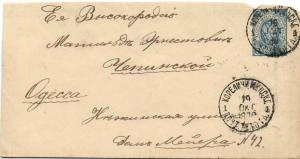 Ея Высокородію
Матильдѣ Эрнестовнѣ
Чепинской
Одесса
Нѣжинская улица
домъ Мейера N 42.
КОРЕЛИЧИ МИНСК.
19
ОКТ